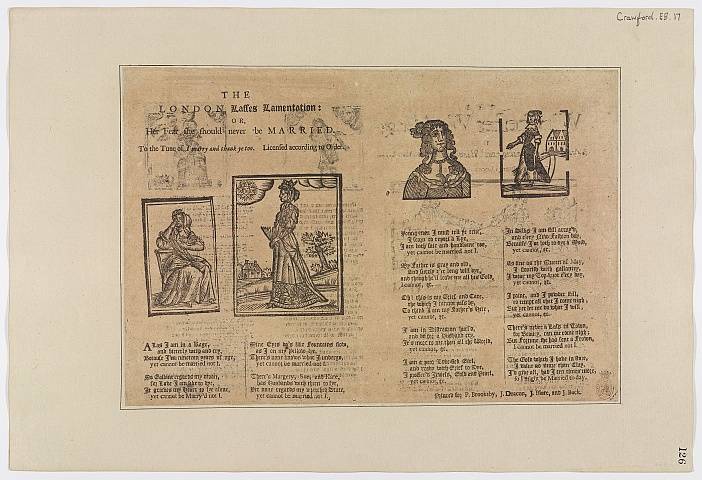 Crawford. EB. 17
THE
LONDON Lasses Lamentation:
OR,
Her Fear she should never be MARRIED.
To the Tune of I marry and thank ye too. Licensed according to Order.
ALas I am in a Rage,
and bitterly weep and cry,
Because I'm nineteen years of age,
yet cannot be married not I.
No Gallant regards my moan,
for Love I am like to dye,
It grieves my Heart to lye alone,
yet cannot be Marry'd not I.
Mine Eyes do like Fountains flow,
as I on my Pillow lye,
There's none knows what I undergo,
yet cannot be married not I.
There's Margery, Sue, and Kate,
has Husbands with them to lye,
yet none regards my
yet cannot be married not I.
Young-men I must tell ye true,
I scorn to tell a Lye,
I am both fair and handsome too,
yet cannot be married not I.
My Father is gray and old,
and surely e're long will dye,
and though he'll leave me all his Gold,
I cannot, &c.
Oh! this is my Grief and Care,
the which I
To think I am my Father's Heir,
yet cannot, &c.
I am in Distraction
yet cannot, &c.
I am a poor
and ready with Grief to dye,
Jewels, Gold and Pearl,
yet cannot, &c.
In Silks I am still array'd,
and every New-fashion buy,
Because I'm loth to dye a Maid,
yet cannot, &c.
As fine as the Queen of May,
I flourish with gallantry,
I wear my Top-knot every day,
yet cannot, &c.
I paint, and I powder still,
to tempt all that I come nigh;
But yet let me do what I will,
yet cannot, &c.
There's never a Lass in Town,
for Beauty, can me come nigh;
But Fortune she has sent a Frown,
I cannot be married not I.
The Gold which I have in store,
I value no more than Clay,
I'd give it all, had I ten times more,
so I might be Married to day.
Printed for P. Brooksby, J. Deacon, J. Blare, and J. Back.
126